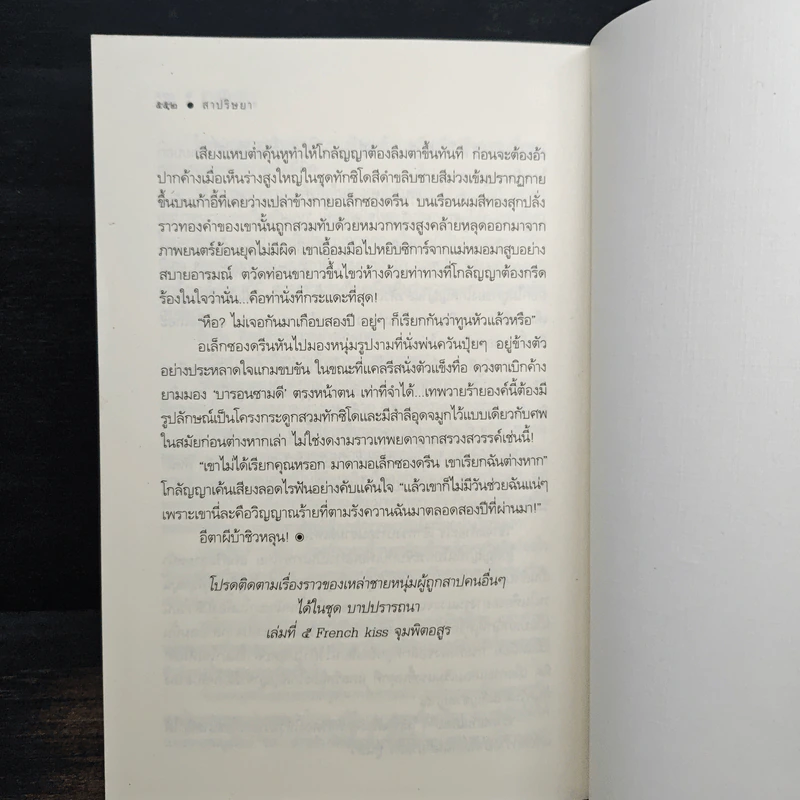 ๕๕๒ ● สาปริษยา
เสียงแหบต่ำคุ้นหูทำให้โกลัญญาต้องลืมตาขึ้นทันที ก่อนจะต้องอ้า
ปากค้างเมื่อเห็นร่างสูงใหญ่ในชุดทักซิโดสีดำขลิบชายสีม่วงเข้มปรากฏกาย
ขึ้นบนเก้าอี้ที่เคยว่างเปล่าข้างกายอเล็กซองดรีน บนเรือนผมสีทองสุกปลั่ง
ราวทองคำของเขานั้นถูกสวมทับด้วยหมวกทรงสูงคล้ายหลุดออกมาจาก
ภาพยนตร์ย้อนยุคไม่มีผิด เขาเอื้อมมือไปหยิบซิการ์จากแม่หมอมาสูบอย่าง
สบายอารมณ์ ตวัดท่อนขายาวขึ้นไขว่ห้างด้วยท่าทางที่โกลัญญาต้องกรีด
ร้องในใจว่านั่น...คือท่านั่งที่กระแดะที่สุด!
“หือ? ไม่เจอกันมาเกือบสองปี อยู่ๆ ก็เรียกกันว่าทูนหัวแล้วหรือ”
อเล็กซองดรีนหันไปมองหนุ่มรูปงามที่นั่งพ่นควันปุ๋ยๆ อยู่ข้างตัว
อย่างประหลาดใจแกมขบขัน ในขณะที่แคลรีสนั่งตัวแข็งทื่อ ดวงตาเบิกค้าง
ยามมอง ‘บารอนซามดี’ ตรงหน้าตน เท่าที่จำได้...เทพวายร้ายองค์นี้ต้องมี
รูปลักษณ์เป็นโครงกระดูกสวมทักซิโดและมีสำลีอุดจมูกไว้แบบเดียวกับศพ
ในสมัยก่อนต่างหากเล่า ไม่ใช่งดงามราวเทพยดาจากสรวงสวรรค์เช่นนี้!
“เขาไม่ได้เรียกคุณหรอก มาดามอเล็กซองดรีน เขาเรียกฉันต่างหาก”
โกลัญญาเค้นเสียงลอดไรฟันอย่างคับแค้นใจ “แล้วเขาก็ไม่มีวันช่วยฉันแน่ๆ
เพราะเขานี่ละคือวิญญาณร้ายที่ตามรังควานฉันมาตลอดสองปีที่ผ่านมา!”
อีตาผีบ้าชิวหลุน! ◉
โปรดติดตามเรื่องราวของเหล่าชายหนุ่มผู้ถูกสาปคนอื่นๆ
ได้ในชุด บาปปรารถนา
เล่มที่ ๕ French kiss จุมพิตอสูร